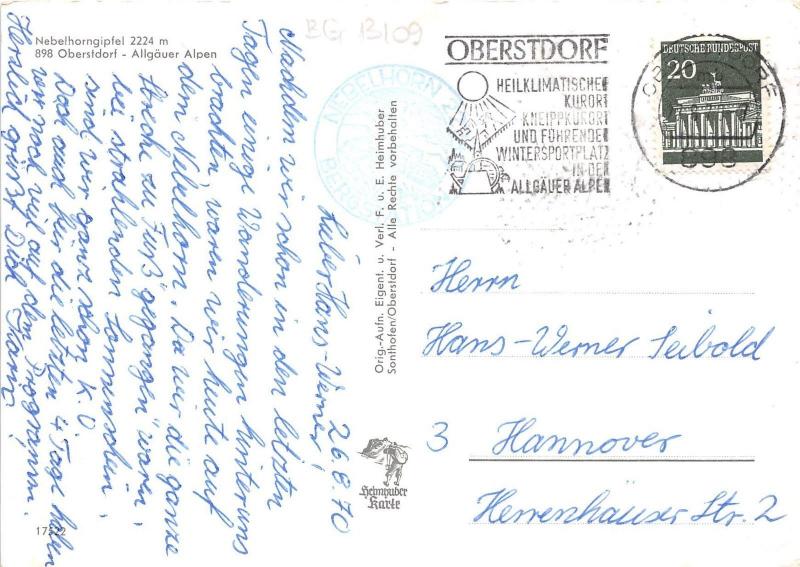 BG 13109
Nebelhorngipfel 2224 m
898 Oberstdorf - Allgäuer Alpen
NEBELHORN
OBERSTDORF
HEILKLIMATISCHER
KURORT
KNEIPPKURORT
UND FÜHRENDER
WINTERSPORTPLATZ
IN DEN
ALLGÄUER ALPEN
DEUTSCHE BUNDESPOST
20
898
26.8.70
Lieber Hans-Werner!
Nachdem wir schon in den letzten
Tagen einige Wanderungen hinter uns
brachten waren wir heute auf
dem Nebelhorn. Da wir die ganze
Strecke zu Fuß "gegangen" waren,
bei strahlenden Sonnenschein,
sind wir ganz schön K.O
Doch auch für die letzten 4 Tage haben
wir noch viel auf dem Programm.
Herzlich grüßt Dich
Orig.-Aufn. Eigent. u. Verl. F. u. E. Heimhuber
Sonthofen/Oberstdorf - Alle Rechte vorbehalten
Heimhuber
Karte
Herrn
Hans-Werner Seibold
3 Hannover
Herrenhäuser Str. 2
17522